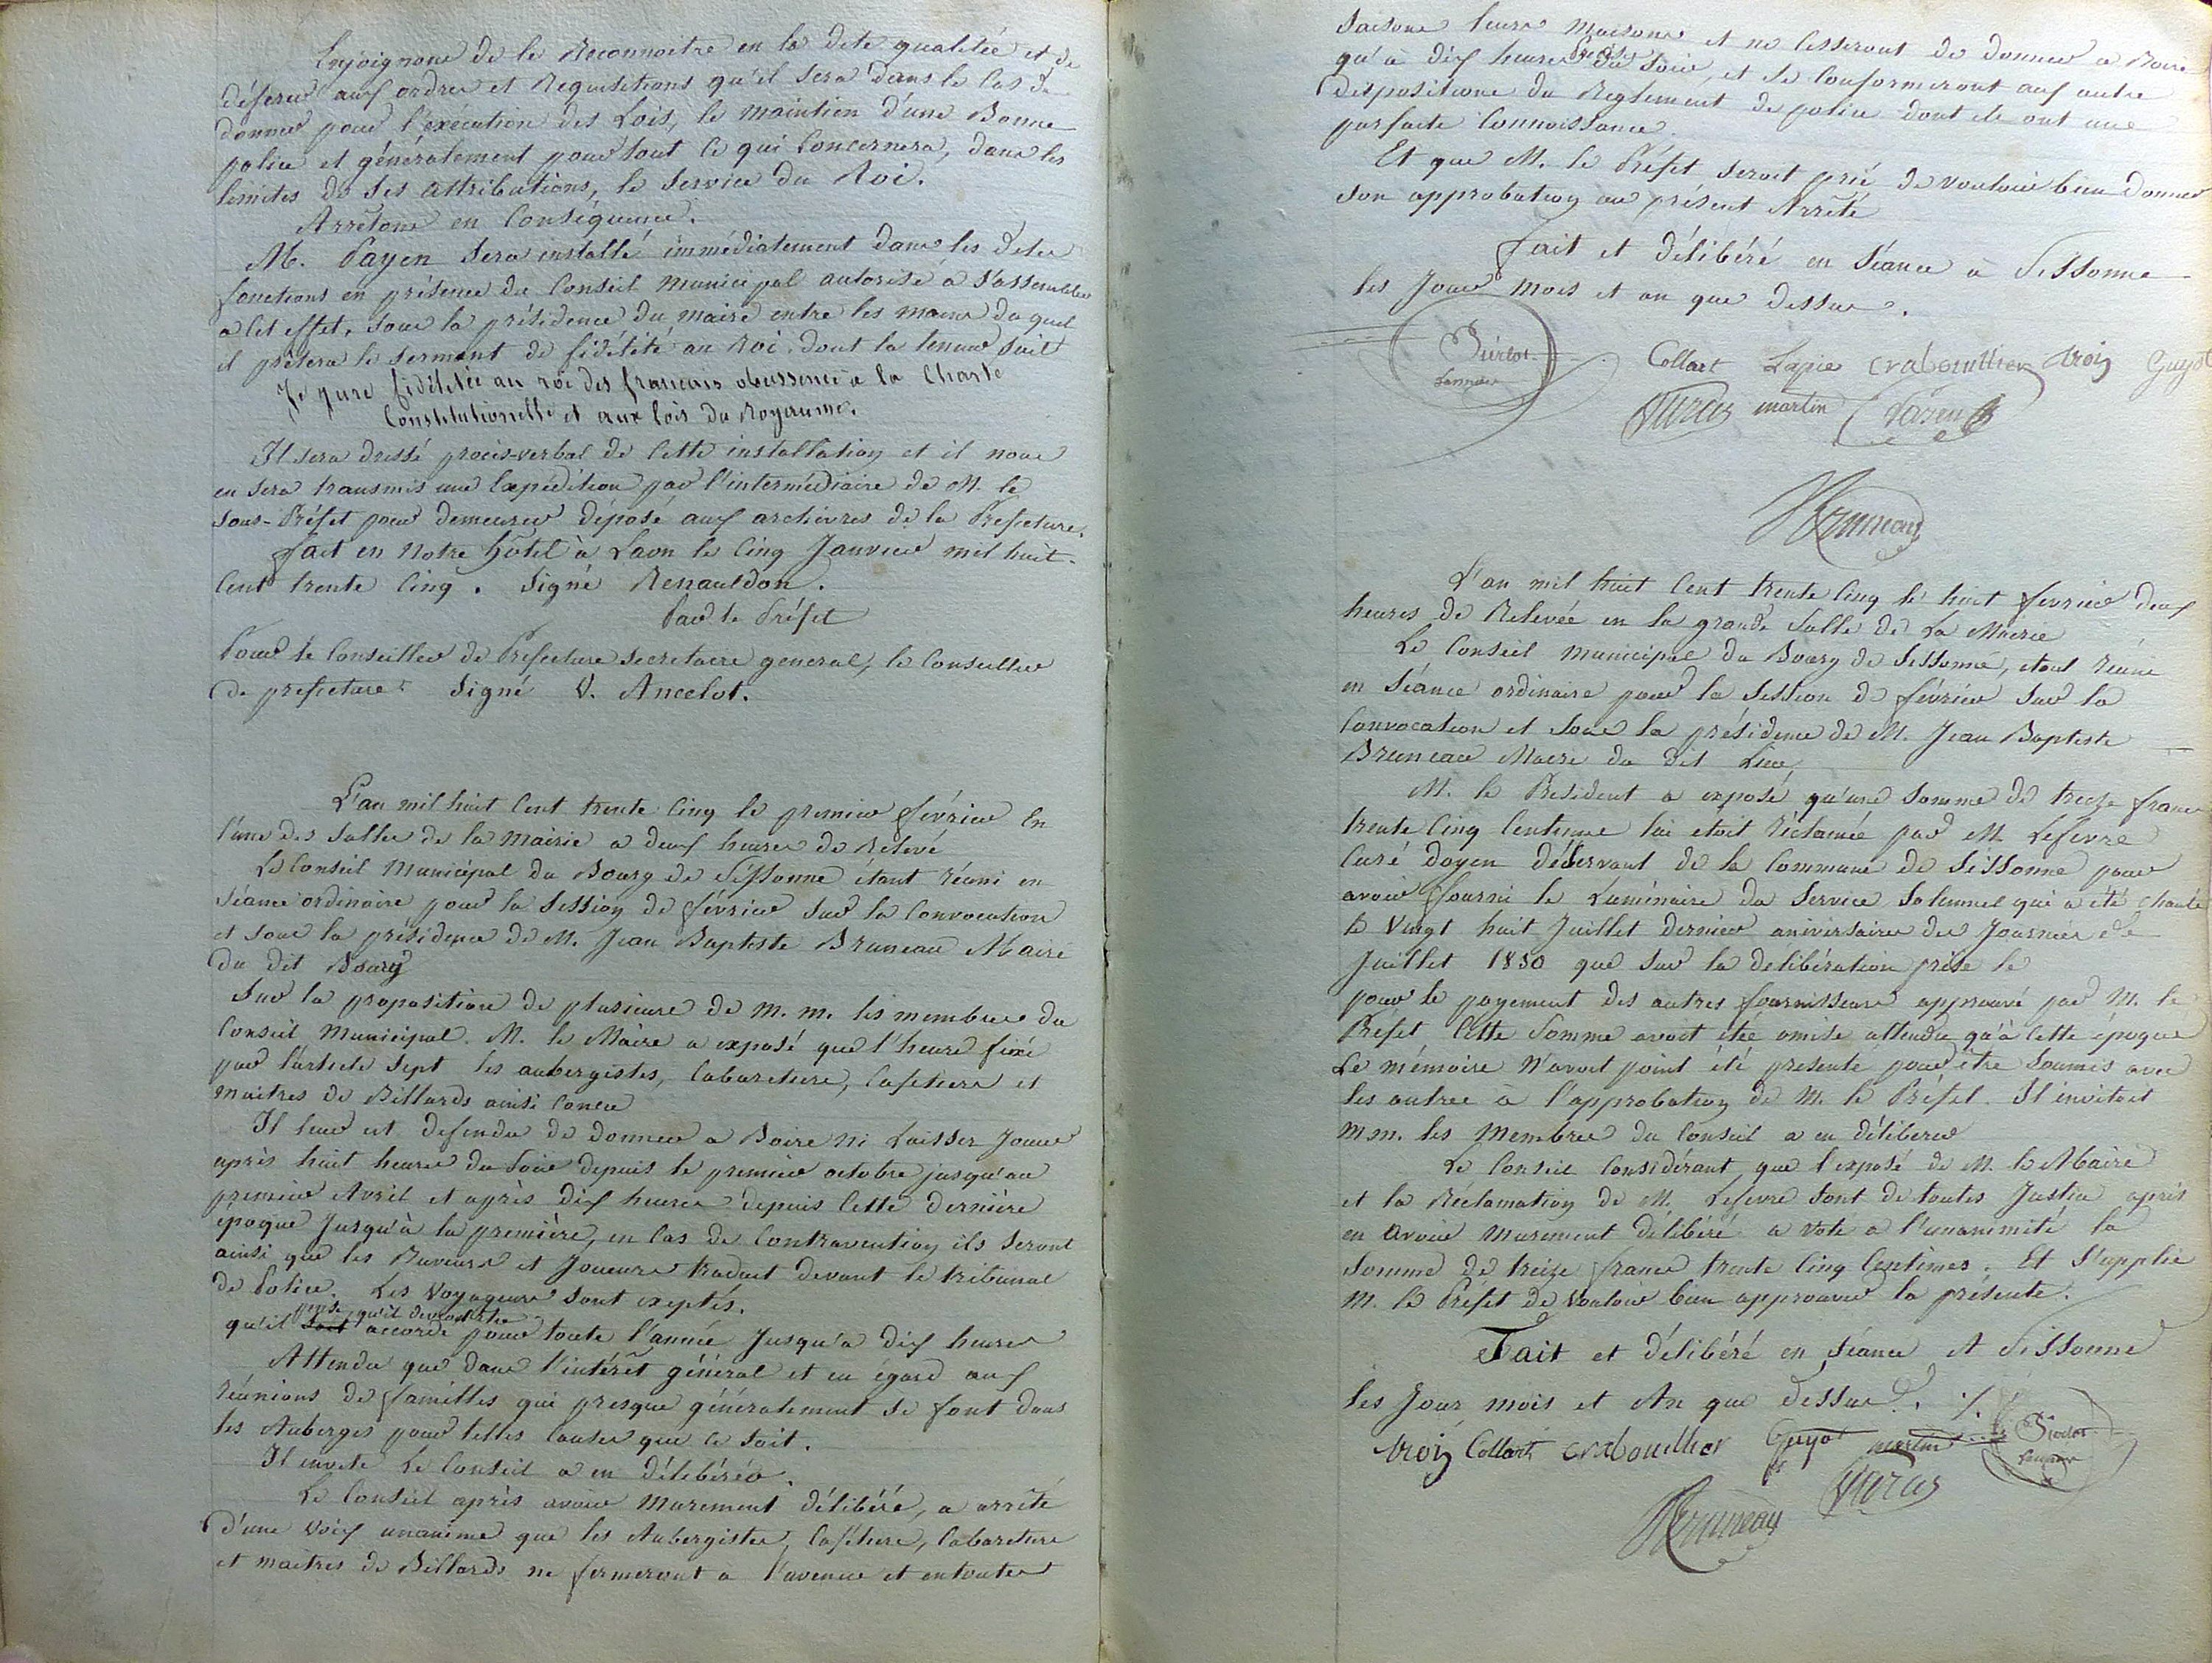 Enjoignons de le Reconnoitre en la dite qualitée et de
déferer aux ordres et Requisitions qu'il sera dans le Cas de
donner pour l'exécution des Lois, le maintien d'une Bonne
police et généralement pour tout ce qui Concernera, dans les
limites de ses attributions, le service du Roi.
Arrêtons en Conséquence.
M. Payen sera installé immédiatement dans les dites
fonctions en présence du Conseil municipal autorisé à s'assembler
a cet effet, sous la présidence du maire entre les mains du quel
il prêtera le serment de fidélité au Roi, dont la teneur suit
Je jure fidélitée au roi des francais obeissence a la Charte
Constitutionelle et aux lois du Royaume.
Il sera dressé procès-verbal de Cette installation et il nous
en sera transmis une Expédition par l'intermédiaire de M. le
Sous-Préfet pour demeurer déposé aux archives de la Prefecture.
fait en Notre hôtel à Laon le Cinq Janvier mil huit-
Cent trente Cinq. Signé Renauldon.
Par le Préfet
Pour le Conseiller de Prefecture Secretaire general, le Conseiller
de prefecture Signé V. Ancelot.
L'an mil huit Cent trente Cinq le premier février En
l'une des Salles de la mairie a deux heures de Relevé
Le Conseil Municipal du Bourg de Sissonne étant réuni en
Séance ordinaire pour la Session de février sur la Convocation
et sous la présidence de M. Jean Baptiste Bruneau Maire
du dit Bourg
Sur la proposition de plusieurs de M. M. les membres du
Conseil Municipal. M. le Maire a exposé que l'heure fixé
par l'article sept les aubergistes, Cabaretiers, Cafetiers et
maitres de Billards ainsi Concu
Il leur est defendu de donner a Boire ni Laisser Jouer
après huit heures du Soir depuis le premier octobre jusqu'au
premier Avril et après dix heures depuis Cette dernière
époque Jusqu'à la première, en Cas de Contravention ils seront
ainsi que les Buveurs et Joueurs traduit devant le tribunal
de Police. Les Voyageurs sont exeptés.
pense qu'il devroit etre
qu'il soit accordé pour toute l'année Jusqu'a dix heures
Attendu que dans l'intérêt général et eu égard aux
réunions de familles qui presque généralement se font dans
les Auberges pour telles Causes que ce soit.
Il invite Le Conseil a en délibérer.
Le Conseil après avoir murement délibéré, a arrêté
d'une Voix unanime que les Aubergistes, Cafetiers, Cabaretiers
et maitres de Billards ne fermeront a l'avenir et en toutes
saisons leurs maisons et ne Cesseront de donner a Boire
précise
qu'à dix heures du Soir, et se Conformeront aux autres
dispositions du Reglement de police dont ils ont une
parfaite Connoissance.
Et que M. le Préfet seroit prié de vouloir bien donner
son approbation au présent Arrêté
fait et délibéré en séance à Sissonne
les Jour mois et an que dessus.
Collart Lapie Crabouillier Vroiy Guyot
martin Payen
Bruneau
L'an mil huit Cent trente Cinq le huit fevrier deux
heures de Relevée en la grande Salle de La Mairie
Le Conseil municipal du Bourg de Sissonne, étant réuni
en Séance ordinaire pour la Session de février sur la
Convocation et sous la présidence de M. Jean Baptiste
Bruneau Maire du dit Lieu,
M. le President a exposé qu'une somme de treize francs
trente Cinq Centimes lui etoit réclamée par M. Lefevre
Curé doyen désservant de la Commune de Sissonne pour
avoir fourni le Luminaire du Service Solennel qui a été chanté
le Vingt huit Juillet dernier aniversaire des Journées de
Juillet 1830 que sur la delibération prise le
pour le payement des autres fournisseurs approuvé par M. le
Préfet Cette somme avoit étée omise attendu qu'à Cette époque
Le mémoire N'avoit point été presenté pour être soumis avec
les autres à l'approbation de M. le Préfet. Il invitoit
M.M. les Membres du Conseil a en délibérer
Le Conseil Considérant que l'exposé de M. le Maire
et la Réclamation de M. Lefevre sont de toutes Justice après
en avoir murement delibéré a voté a l'unanimité la
somme de treize francs trente Cinq Centimes. Et Supplie
M. le Préfet de Vouloir bien approuver la présente.
Fait et délibéré en séance A Sissonne
les Jour mois et An que dessus. ./.
Vroiy Collart Crabouillier Guyot martin
Bruneau